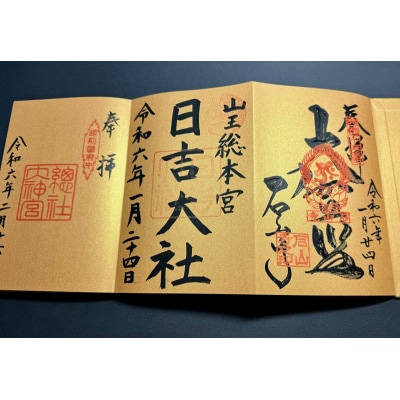 令和六年
一月廿四日
奉拝
石山寺
山王総本宮
日吉大社
令和六年一月二十四日
奉拝
總社
大神宮
令和六年二月十